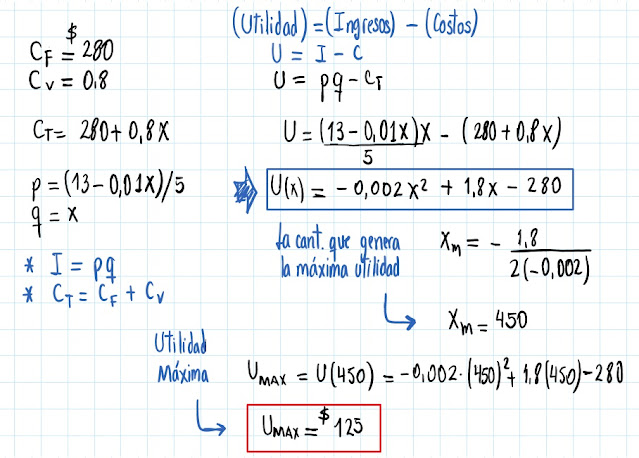 C_F = $ 280
C_V = 0.8
C_T = 280 + 0,8x
p = (13 - 0,01x)/5
q = x
* I = pq
* C_T = C_F + C_V
(Utilidad) = (Ingresos) - (Costos)
U = I - C
U = pq - C_T
U = (13 - 0,01x)x / 5 - (280 + 0,8x)
U(x) = - 0,002x² + 1,8x - 280
La cant. que genera
la máxima utilidad
x_m = - 1,8 / 2(-0,002)
x_m = 450
Utilidad
Máxima
U_MAX = U(450) = -0,002·(450)² + 1,8(450) - 280
U_MAX = $ 125